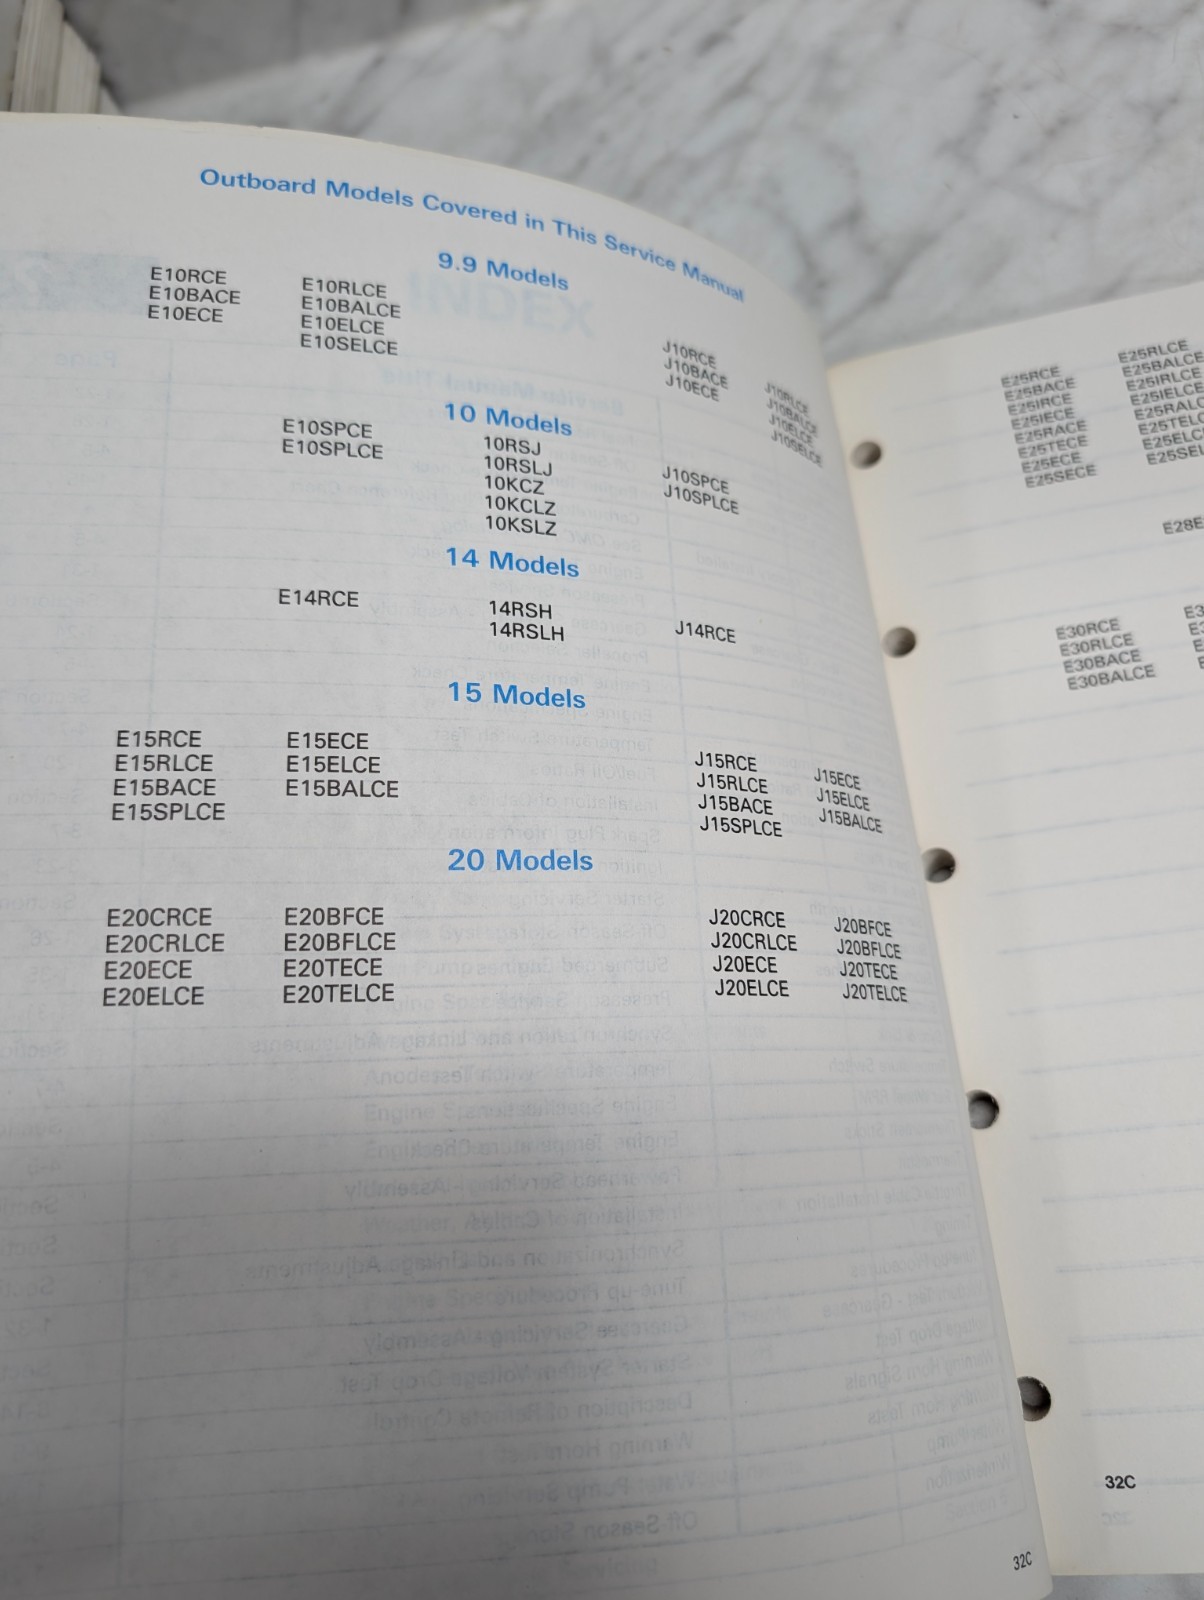 Outboard Models Covered in This Service Manual
9.9 Models
E10RCE E10RLCE J10RCE J10RLCE
E10BACE E10BALCE J10BACE J10BALCE
E10ECE E10ELCE J10ECE J10ELCE
E10SELCE J10SELCE
10 Models
E10SPCE 10RSJ J10SPCE
E10SPLCE 10RSLJ J10SPLCE
10KCZ
10KCLZ
10KSLZ
14 Models
E14RCE 14RSH J14RCE
14RSLH
15 Models
E15RCE E15ECE J15RCE J15ECE
E15RLCE E15ELCE J15RLCE J15ELCE
E15BACE E15BALCE J15BACE J15BALCE
E15SPLCE J15SPLCE
20 Models
E20CRCE E20BFCE J20CRCE J20BFCE
E20CRLCE E20BFLCE J20CRLCE J20BFLCE
E20ECE E20TECE J20ECE J20TECE
E20ELCE E20TELCE J20ELCE J20TELCE
32C
E25RCE E25RLCE
E25BACE E25BALCE
E25IRCE E25IRLCE
E25IECE E25IELCE
E25RACE E25RALC
E25TECE E25TELC
E25ECE E25ELC
E25SECE E25SEL
E28E
E30RCE E3
E30RLCE
E30BACE
E30BALCE
32C